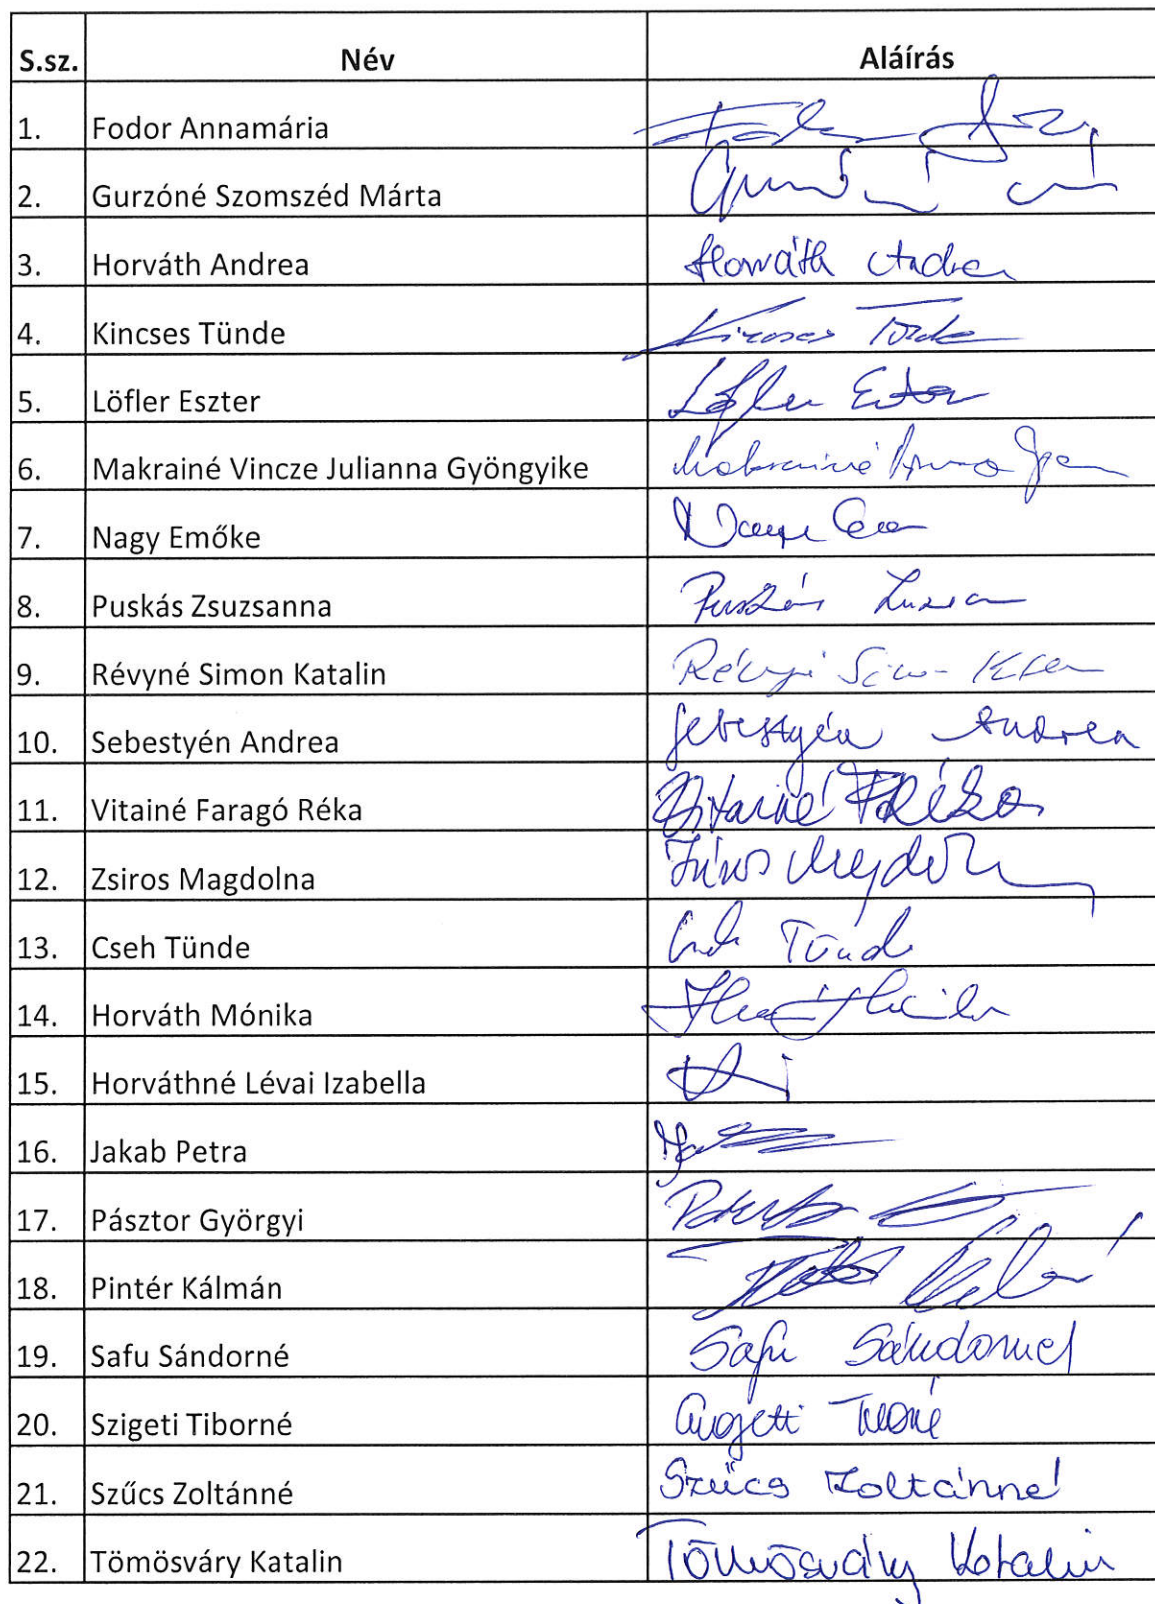 S.sz. Név Aláírás
1. Fodor Annamária
2. Gurzóné Szomszéd Márta
3. Horváth Andrea Horváth Andrea
4. Kincses Tünde Kincses Tünde
5. Löfler Eszter Löfler Eszter
6. Makrainé Vincze Julianna Gyöngyike Makrainé
7. Nagy Emőke Nagy
8. Puskás Zsuzsanna Puskás
9. Révyné Simon Katalin
10. Sebestyén Andrea Sebestyén Andrea
11. Vitainé Faragó Réka Vitainé F Réka
12. Zsiros Magdolna
13. Cseh Tünde Cseh Tünde
14. Horváth Mónika
15. Horváthné Lévai Izabella
16. Jakab Petra
17. Pásztor Györgyi
18. Pintér Kálmán
19. Safu Sándorné Safu Sándorné
20. Szigeti Tiborné
21. Szűcs Zoltánné Szűcs Zoltánné
22. Tömösváry Katalin Tömösváry Katalin